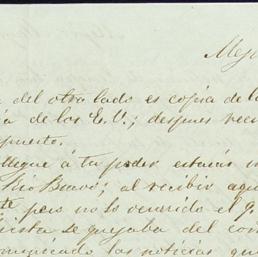 Mej
del otro lado es copia de la
de los E. U.; despues reci
puesto.
llegue á tu poder estarás
Rio Bravo; al recibir aqu
pero no lo ocurrido el
ista se quejaba del con
municado las noticias qu